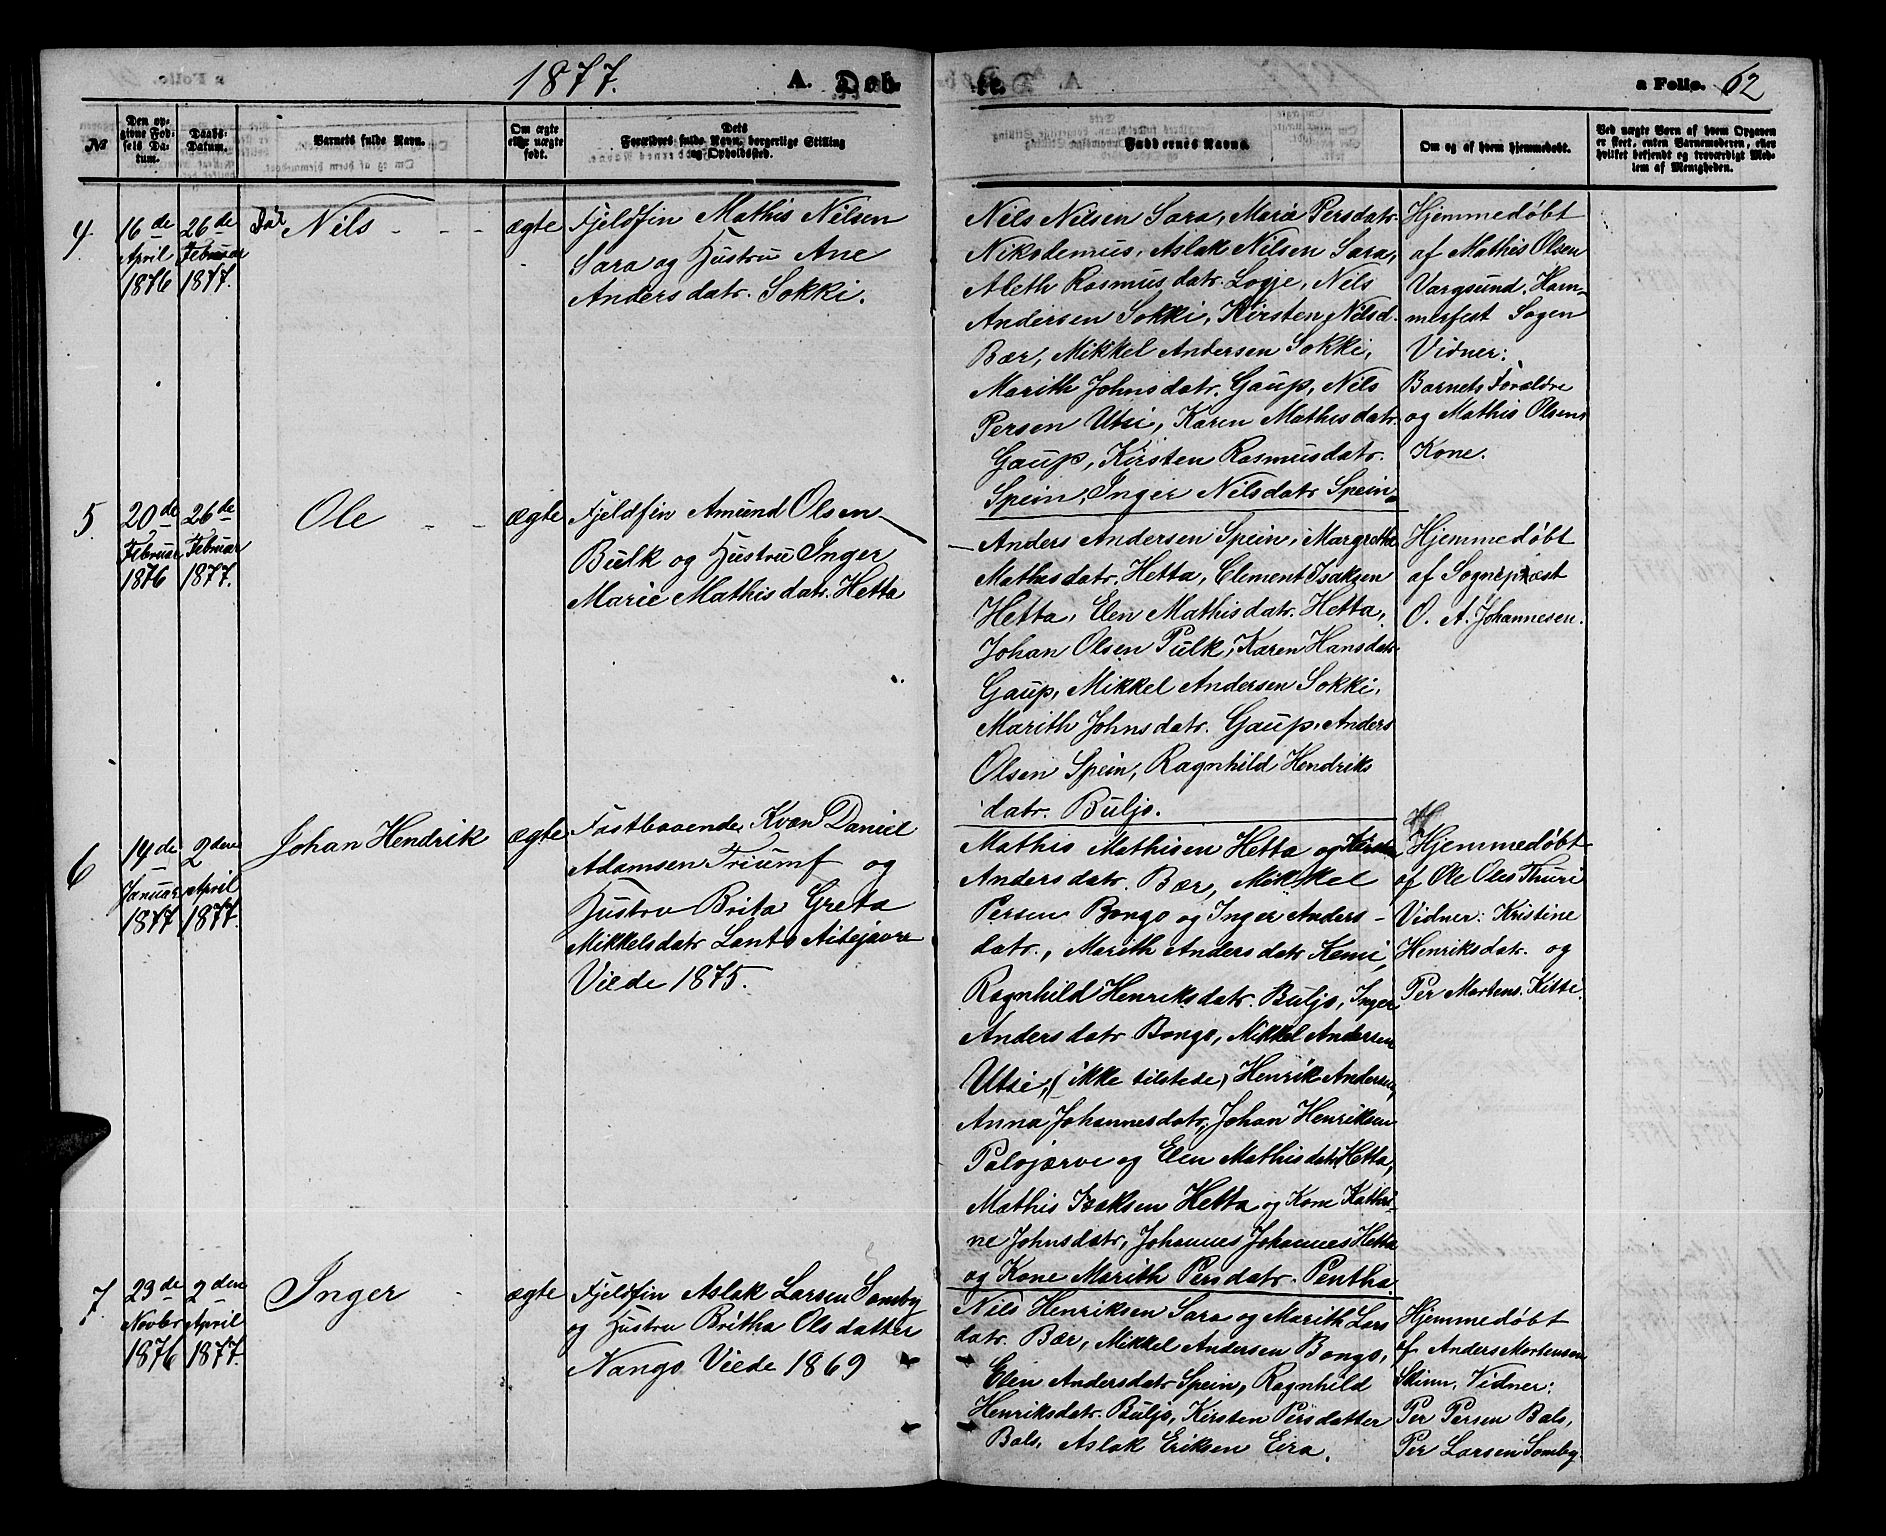 1877. A. Døb-
te. a Folio. 62
No
Den op-
givne Fød-
sels Da-
tum.
Daabs-
Datum.
Barnets fulde Navn.
Om ægte
eller uægte
født.
Dets
Forældres fulde Navn, borgerlige Stilling
og Opholdssted.
Faddernes Navne.
Om og af hvem hjemmedøbt.
Ved uægte Børn af hvem Opgaven
er skeet, enten Barnemoderen, eller
hvilket bekjendt og troværdigt Med-
lem af Menigheden.
4.
16de
April
1876
26de
Februar
1877.
Nils
ægte
Fjeldfin Mathis Nilsen
Sara og Hustru Ane
Andersdatr. Sokki.
Nils Nilsen Sara, Marie Persdatr.
Nikodemus, Aslak Nilsen Sara,
Aleth Rasmusdatr. Logje, Nils
Andersen Sokki, Kirsten Nilsd.
Bær, Mikkel Andersen Sokki,
Marith Johnsdatr. Gaup, Nils
Persen Utsi, Karen Mathisdatr.
Gaup, Kirsten Rasmusdatr.
Spein, Inger Nilsdatr Spein
Hjemmedøbt
af Mathis Olsen
Vargsund. Ham-
merfest Sogen
Vidner:
Barnets Forældre
og Mathis Olsens
Kone.
5.
20de
Februar
1876
26de
Februar
1877.
Ole
ægte
Fjeldfin Amund Olsen
Bulk og Hustru Inger
Marie Mathisdatr. Hetta
Anders Andersen Spein, Margrethe
Mathisdatr. Hetta, Clement Isaksen
Hetta, Elen Mathisdatr. Hetta,
Johan Olsen Pulk, Karen Hansdatr.
Gaup, Mikkel Andersen Sokki,
Marith Johnsdatr. Gaup, Anders
Olsen Spein, Ragnhild Hendriks
datr. Buljo.
Hjemmedøbt
af Sognepræst
O. A. Johannesen.
6
14de
Januar
1877
2den
April
1877.
Johan Hendrik
ægte
Fastboende Kvæn Daniel
Adamsen Triumf og
Hustru Brita Greta
Mikkelsdatr Lanto Aitejavre
Viede 1875.
Mathis Mathisen Hetta og Kirsten
Andersdatr. Bær, Mikkel
Persen Bongo og Inger Anders-
datr., Marith Andersdatr Kemi,
Ragnhild Henriksdatr. Buljo, Inger
Andersdatr Bongo, Mikkel Andersen
Utsi, (ikke tilstede) Henrik Andersen,
Anna Johannesdatr, Johan Henriksen
Palojærve og Elen Mathisdatr Hetta,
Mathis Isaksen Hetta og Kone Kathri-
ne Johnsdatr, Johannes Johannes Hetta
og Kone Marith Persdatr. Pentha.
Hjemmedøbt
af Ole Oles Thuri
Vidner: Kristine
Henriksdatr. og
Per Mortens. Kitti.
7.
29de
Novbr
1876
2den
April
1877.
Inger
ægte
Fjeldfin Aslak Larsen Somby
og Hustru Britha Olsdatter
Nango Viede 1869
Nils Henriksen Sara og Marith Lars
datr. Bær, Mikkel Andersen Bongo,
Elen Andersdatr Spein, Ragnhild
Henriksdatr. Buljo, Kirsten Persdatter
Bals, Aslak Eriksen Eira.
Hjemmedøbt
af Anders Mortensen
Skum, Vidner:
Per Persen Bals,
Per Larsen Somby.